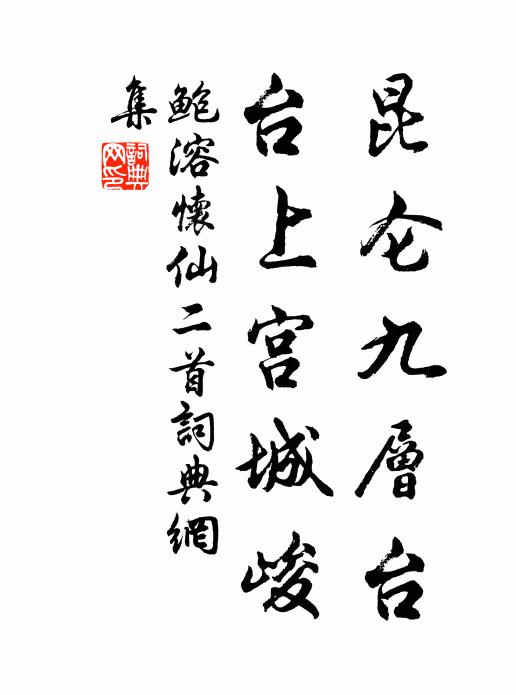 昆仑九層台
台上宫城峻
鲍溶懷仙二首詞典網
集
詞典
网印